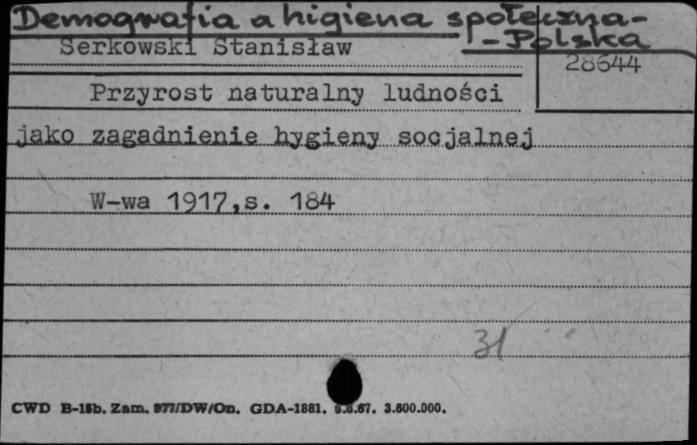 Demografia a higiena społeczna-
-Polska
Serkowski Stanisław
28644
Przyrost naturalny ludności
jako zagadnienie hygieny socjalnej
W-wa 1917,s. 184
31
CWD B-15b. Zam. 977/DW/On. GDA-1881. 5.8.67. 3.600.000.